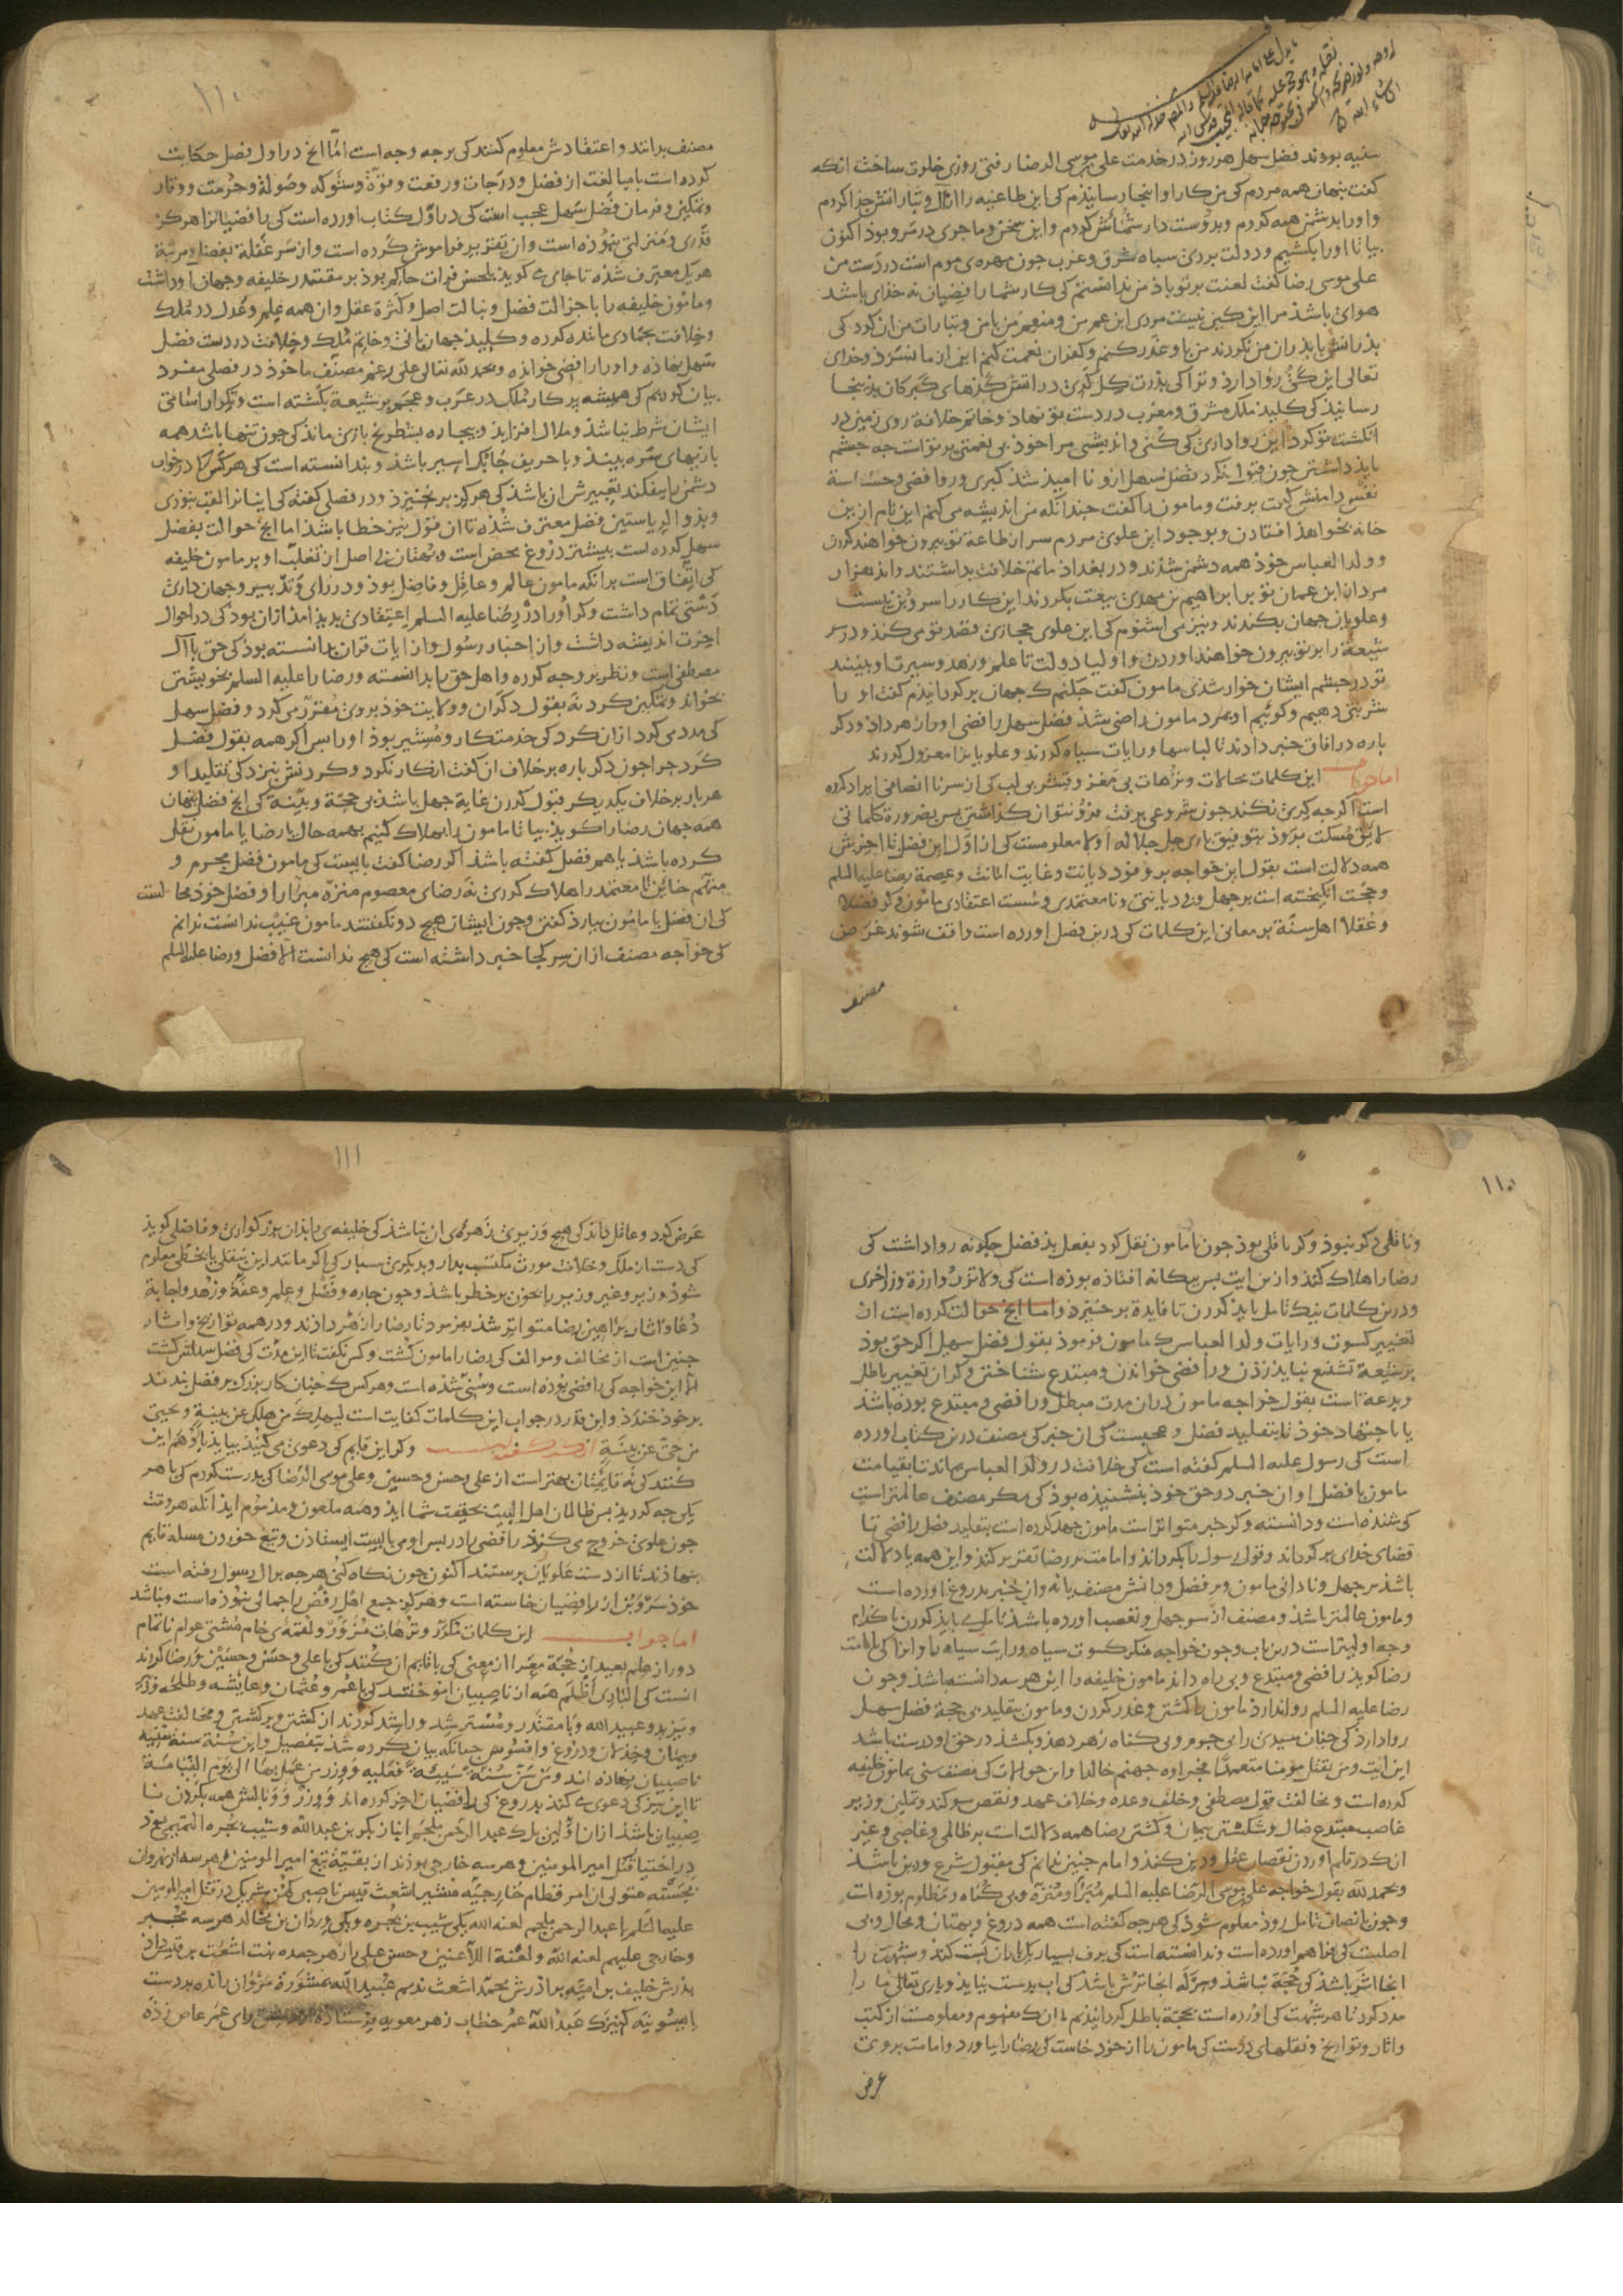 سفیه بودند فضل سهل هر روز در خدمت علی بن موسی الرضا رفتی روزی خلوت ساخت انکه
کفت بنهان همه مردم کی من کار او اینجا رسانیذم کی این طاعنیه را از آل و تبارش جذا کردم
و او را بدشمن همه کردم و بدوست دار شما اش کردم و این سخن و ماجری در سر و بوذ اکنون
بیا تا او را بکشیم و دولت بردی سیاه شرق و عرب جون مهره‌ی موم است در دست من
علی موسی رضا کفت لعنت بر تو باذ من ندانستم کی کار شما رافضیان نه خذای باشد
هوای باشذ مرا این کین نیست مردی ابن عم من و منعم من با من و تبارات من ان کرد کی
بذرانش با بذران من نکردند من با او غدر کنم و کفران نعمت کنم این از ما نسزد و خدای
تعالی این کی روا دارد و ترا کی بذرت کل کری در اتش کذهای کبرکان بذینجا
رسانیذ کی کلید ملک مشرق و مغرب در دست تو نهاذ و خاتم خلافه روی زمین در
انکشت تو کرد این روا داری کی کنی و اندیشی مرا خوذ بی نعمتی بر تو است جه جشم
بایذ داشتن جون قبول نکرد فضل سهل ازو نا امیذ شد کبری و روافضی و خساسة
نفس دامنش کرفت برفت و مامون را کفت جندانکه من اندیشه می کنم این نام از بن
خانه نخواهذ افتادن و بوجود این علوی مردم سر از طاعة تو بیرون خواهند کردن
و ولد العباس خوذ همه دشمن شذند و در بغداذ ماتم خلافت بداشتند و اند هزار
مرد از ابن عمان تو بر ابراهیم بن مهدی بیعت بکردند این کار را سر و بن نیست
و علویان جهان بکندند و نیز می اشنوم کی این علوی حجازی قصد تو می کند و در سر
شیعة را بر تو بیرون خواهند اوردن و اولیا دولت تا علم و زهد و سیرت او ببینند
تو در جشم ایشان خوار شذی مامون کفت جکنم ک جهان بر کردانیذم کفت او را
شربتی دهیم و کوئیم او بمرد مامون راضی شذ فضل سهل رافضی او را زهر داد و دکر
باره در افاق خبر دادند تا لباسها و رایات سیاه کردند و علویان را معزول کردند
اما جواب این کلمات محالات و ترهات بی مغز و قشر بی لب کی از سر نا انصافی ایراد کرده
است اکر جه کری نکند جون شروعی برفت فرو نتوان کذاشتن بس بضرورة کلماتی
لایق نفسکت برود بتوفیق باری جل جلاله اولا معلومست کی از اول این فصل تا اخرش
همه دلالت است بقول این خواجه بر وفور دیانت و غایت امانت و عصمة رضا علیه السلم
و حجت انکیخته است بر جهل و بی دیانتی و نا معتمدی و سست اعتقادی مامون و کر فضلا
و عقلا اهل سنة بر معانی این کلمات کی درین فصل اورده است واقف شوند غرض
مصنف
۱۱۰
مصنف بدانند و اعتقادش معلوم کنند کی بر جه وجه است اما انج در اول فصل حکایت
کرده است با مبالغت از فضل و درجات و رفعت و قوة و شوکه و صولة و حرمت و وقار
و تمکین و فرمان فضل سهل عجب است کی در اول کتاب اورده است کی رافضیان را هرکز
قدری و منزلتی نبوذه است و ان تقریر فراموش کرده است و از سر غفلة بفضل و مرتبة
هر یک معترف شذه تا جای می کوید بلحسن فرات حاکم بوذ بر مقتدر خلیفه و جهان او داشت
و مامون خلیفه را با جزالت فضل و نبالت اصل و کثرة عقل و ان همه علم و عدل در ملک
و خلافت بجمادی مانده کرده و کلید جهانبانی و خاتم ملک و خلافت در دست فضل
سهل نهاذه و او را رافضی خوانده و بحمد لله تعالی علی رغم مصنف ما خوذ در فصلی مفرد
بیان کردیم کی همیشه بر کار ملک در عرب و عجم بر شیعة بکشته است و تکرار اسامی
ایشان شرط نباشذ و ملال افزاید و بیجاره بشطرنج بازی ماند کی جون تنها باشد همه
بازیهای سره بیند و با حریف جابک اسیر باشذ و بندانسته است کی هر کس کا در خواب
دشمن را بیفکند تعبیرش ان باشذ کی هرکز برنخیزد و در فصلی کفته کی ایشانرا لقب نبوذی
و بذو الریاستین فضل معترف شذه تا ان قول نیز خطا باشذ اما انج حوالت بفضل
سهل کرده است بیشتر دروغ محض است و بهتان بی اصل از تغلب او بر مامون خلیفه
کی اتفاق است بر انکه مامون عالم و عاقل و فاضل بوذ و در رای و تدبیر و جهانداری
دستی تمام داشت و کر او را در رضا علیه السلم اعتقادی بدید امد ازان بوذ کی در احوال
اخرت اندیشه داشت و از اخبار رسول و از ایات قران بدانسته بوذ کی حق با آل
مصطفی است و نظر بر وجه کرده و اهل حق را بدانسته و رضا را علیه السلم بخویشتن
بخواند و تمکین کرد نه بقول دکران و ولایت خوذ بروی مقرر می کرد و فضل سهل
کی مدد می کرد ازان کرد کی خدمتکار و مستشیر بوذ او را بس اکر همه بقول فضل
کرد جرا جون دکر باره بر خلاف ان کفت انکار نکرد و کردنش نیزد کی تقلید او
هر بار بر خلاف یکدیکر قبول کردن غایة جهل باشذ بی حجة و بینة کی انج فضل بنهان
همه جهان رضا را کوید بیا تا مامون را بهلاک کنیم بهمه حال یا رضا یا مامون نقل
کرده باشذ یا هم فضل کفته باشذ اکر رضا کفت بایست کی مامون فضل مجرم و
متهم خاین نا معتمد را هلاک کردی نه رضای معصوم منزه مبرا را و فضل خوذ محالست
کی ان فضل با مامون بیارذ کفتن و جون ایشان هیج دو نکفتند مامون غیب نداشت ندانم
کی خواجه مصنف ازان سر کجا خبر داشته است کی هیج ندانست الا فضل و رضا علیه السلم
۱۱۰
و ناقلی دکر نبوذ و کر ناقلی بوذ جون با مامون نقل کرد بفعل بذ فضل جکونه روا داشت کی
رضا را هلاک کند و از من ایت بس بیکانه افتاذه بوذه است کی و لا تزر وازرة وزر اخری
و درین کلمات نیک تامل باید کردن تا فایدة برخیزد و اما انج حوالت کرده است ان
تغییر کسوت و رایات ولد العباس ک مامون فرموذ بقول فضل سهل اکر حق بوذ
بر شیعة تشنیع نباید زدن و رافضی خواندن و مبتدع شناختن و کر ان تغییر باطل
و بدعة است بقول خواجه مامون دران مدت مبطل و رافضی و مبتدع بوده باشذ
یا باجتهاد خوذ یا بتقلید فضل و عجبست کی ان خبر کی مصنف درین کتاب اورده
است کی رسول علیه السلم کفته است کی خلافت در ولد العباس بماند تا بقیامت
مامون با فضل او ان خبر در حق خوذ بنشنیذه بوذ کی مکر مصنف عالمتر است
کی شنذه است و دانسته و کر خبر متواتر است مامون جهد کرده است بتقلید فضل رافضی تا
قضای خدای بر کرداند و قول رسول را بکرداند و امامت بر رضا تقریر کند و این همه یا دلالت
باشذ بر جهل و نادانی مامون و بر فضل و دانش مصنف یا نه و ان خبر بدروغ اورده است
و مامون عالمتر باشذ و مصنف از سر جهل و تعصب اورده باشذ تا ملی باید کردن با کدام
وجه اولیتر است درین باب و جون خواجه منکر کسوت سیاه و رایت سیاه را و انرا کی بامامت
رضا کوید رافضی و مبتدع و بی راه داند مامون خلیفه را این هر سه دانسته باشذ و جون
رضا علیه السلم روا ندارد مامون را کشتن و غدر کردن و مامون بتقلید بی حجة فضل سهل
روا دارد کی جنان سیدی را بی جرم و بی کناه زهر دهد و بکشذ در حق او درست باشد
این ایت و من یقتل مومنا متعمدا فجزاوه جهنم خالدا و این حوالات کی مصنف سنی بمامون خلیفه
کرده است و مخالفت قول مصطفی و خلف وعده و خلاف عهد و نقض سوکند و تمکین وزیر
غاصب مبتدع ضال و شکستن بیمان و کشتن رضا همه دلالت است بر ظالمی و غاصی و غیر
انک در قلم اوردن نقصان عقل و دین کند و امام جنین ندانم کی مقبول شرع و دین باشذ
و بحمد لله بقول خواجه علی بن موسی الرضا علیه السلم مبرا و منزه و بی کناه و مظلوم بوذه است
و جون بانصاف تامل روذ معلوم شوذ کی هرجه کفته است همه دروغ و بهتان و محال و بی
اصلیست کی فراهم اورده است و ندانسته است کی برف بسیار یک باران بست کند و شبهت را
انجا اثر باشذ کی حجة نباشذ و سرکه انجا ترش باشذ کی اب بدست نیاید و باری تعالی ما را
مدد کرد تا هر شبهت کی اورده است بحجة باطل کردانیذیم با انک مفهوم و معلومست از کتب
و اثار و تواریخ و نقلهای درست کی مامون را از خوذ خاست کی رضا را بیاورد و امامت بروی
عرض
۱۱۱
عرض کرد و عاقل داند کی هیج وزیری زهره‌ی ان نباشذ کی خلیفه‌ی بذان بزرکواری و فاضلی کوید
کی دست از ملک و خلافت موروث مکتسب بدار و بدیکری سبار کی اکر مانند این بنقلی یا بخطی معلوم
شوذ وزیر و غیر وزیر را بخون بر خطر باشذ و جون جاره و فضل و علم و عفة و زهد و اجابة
دعا و اثار براهین رضا متواتر شذ بفرموذ تا رضا را زهر دادند و در همه تواریخ و اثار
جنین است از مخالف و موالف کی رضا را مامون کشت و کس نکفت تا این مدت کی فضل سهلش کشت
الا این خواجه کی رافضی بوذه است و سنی شذه است و هر کس ک جنان کار بزرک بر فضل بندند
بر خوذ خندد و این قدر در جواب این کلمات کفایت است لیهلک من هلک عن بینة و یحیی
من حی عن بینة انکه کفته است و کر این قایم کی دعوی می کنیذ بیایذ با او هم این
کنند کی نه قایمتان بهتر است از علی و حسن و حسین و علی موسی الرضا کی بدرست کردم کی با هر
یکی جه کردید بس ظالمان اهل البیت بحقیقت شما ایذ و همه ملعون و مذموم ایذ انکه هر وقت
جون علوی خروج می کرد رافضی را در بس او می بایست ایستاذن و تیغ خوردن مسله قایم
بنهاذند تا از دست علویان برستند اکنون جون نکاه کنی هر جه بر ال رسول رفته است
خوذ سر و بن از رافضیان خاسته است و هرکز جمع اهل رفض را جمالی نبوذه است و نباشذ
اما جواب این کلمات مکرر و ترهات مزور و لقمه‌ی خام مشتی عوام ناتمام
دور از علم بعید از حجة معرا از معنی کی با قایم ان کنند کی با علی و حسن و حسین و رضا کردند
انست کی البادی اظلم همه از ناصبیان اموختند کی با عمر و عثمان و عایشه و طلحه و زبیر
و یزید و عبید الله و با مقتدر و مسترشد و راشد کردند از کشتن و برکشتن و مخالفت عهد
و بیمان و خذلان و دروغ و افسوس جنانکه بیان کرده شذ بتفصیل و این سنة سنیة
ناصبیان نهاذه اند و من سن سنة سیئة فعلیه وزرها و وزر من عمل بها الی یوم القیامة
تا این نیز کی دعوی می کند بدروغ کی رافضیان اخر کرده اند وزر و وبالش همه بکردن نا
صبیان باشذ ازان اولین یک عبد الرحمن ملجم انباز بکر بن عبد الله و شبیب بجره التمیمی بوذ
در اختیار قتل امیر المومنین و هر سه خارجی بوذند از بقیة تیغ امیر المومنین و هر سه از نهروان
بجسته متولی ان امر قطام خارجیه مشیر اشعث قیس ناصبی کهن شریک در قتل امیر المومنین
علیه السلم با عبد الرحمن ملجم لعنه الله یکی شبیب بن بجره و یکی وردان بن مجالد هر سه مجبر
و خارجی علیهم لعنة الله و لعنة اللاعنین و حسن علی را زهر جعده بنت اشعث بن قیس داذ
بذرش خلیف بنی امیه برادرش محمد اشعث ندیم عبید الله بمشورة مروان رانده بر دست
ایسونیه کنیزک عبد الله عمر خطاب زهر معویه فرستاده رای عمر عاص زذه